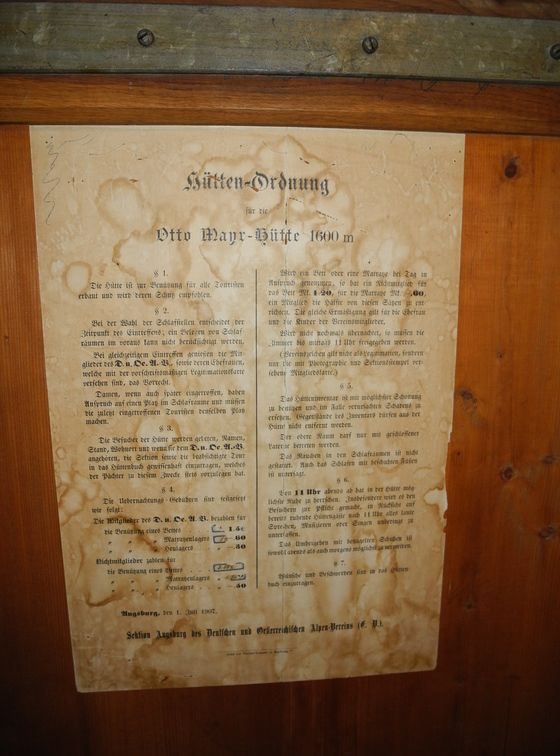 Hütten-Ordnung
für die
Otto Mayr-Hütte 1600 m
§ 1.
Die Hütte ist zur Benützung für alle Touristen
erbaut und wird deren Schutz empfohlen.
§ 2.
Bei der Wahl der Schlafstellen entscheidet der
Zeitpunkt des Eintreffens; ein Belegen von Schlaf
räumen im voraus kann nicht berücksichtigt werden.
Bei gleichzeitigem Eintreffen genießen die Mit-
glieder des D. u. Oe. A. V., sowie deren Ehefrauen,
welche mit der vorschriftsmäßigen Legitimationskarte
versehen sind, das Vorrecht.
Damen, wenn auch später eingetroffen, haben
Anspruch auf einen Platz im Schlafraume und müssen
die zuletzt eingetroffenen Touristen denselben Platz
machen.
§ 3.
Die Besucher der Hütte werden gebeten, Namen,
Stand, Wohnort und wenn sie dem D. u. Oe. A.-V.
angehören, die Sektion sowie die beabsichtigte Tour
in das Hüttenbuch gewissenhaft einzutragen, welches
der Pächter zu diesem Zwecke stets vorzulegen hat.
§ 4.
Die Uebernachtungs-Gebühren sind festgesetzt
wie folgt:
Die Mitglieder des D. u. Oe. A. V. bezahlen für
die Benützung eines Bettes
" " " Matratzenlagers . 60
" " " Heulagers . . 30
Nichtmitglieder zahlen für
die Benützung eines Bettes
" " " Matratzenlagers
" " " Heulagers . . . 50
Wird ein Bett oder eine Matratze bei Tag in
Anspruch genommen, so hat ein Nichtmitglied für
das Bett Mk. 1.20, für die Matratze Mk. -.60,
ein Mitglied die Hälfte von diesen Sätzen zu ent-
richten. Die gleiche Ermäßigung gilt für die Ehefrau
und die Kinder der Vereinsmitglieder.
Wird nicht nochmals übernachtet, so müssen die
Zimmer bis mittags 11 Uhr freigegeben werden.
(Vereinszeichen gilt nicht als Legitimation, sondern
nur die mit Photographie und Sektionsstempel ver-
sehene Mitgliedskarte.)
§ 5.
Das Hütteninventar ist mit möglichster Schonung
zu benützen und im Falle verursachten Schadens zu
ersetzen. Gegenstände des Inventars dürfen aus der
Hütte nicht entfernt werden.
Der obere Raum darf nur mit geschlossener
Laterne betreten werden.
Das Rauchen in den Schlafräumen ist nicht
gestattet. Auch das Schlafen mit beschuhten Füßen
ist untersagt.
§ 6.
Von 11 Uhr abends ab hat in der Hütte mög-
lichste Ruhe zu herrschen. Insbesondere wird es den
Besuchern zur Pflicht gemacht, in Rücksicht auf
bereits ruhende Hüttengäste nach 11 Uhr alles laute
Sprechen, Musizieren oder Singen unbedingt zu
unterlassen.
Das Umhergehen mit benagelten Schuhen ist
sowohl abends als auch morgens möglichst zu vermeiden.
§ 7.
Wünsche und Beschwerden sind in das Hütten-
buch einzutragen.
Augsburg, den 1. Juli 1907.
Sektion Augsburg des Deutschen und Oesterreichischen Alpen-Vereins (E. V.).